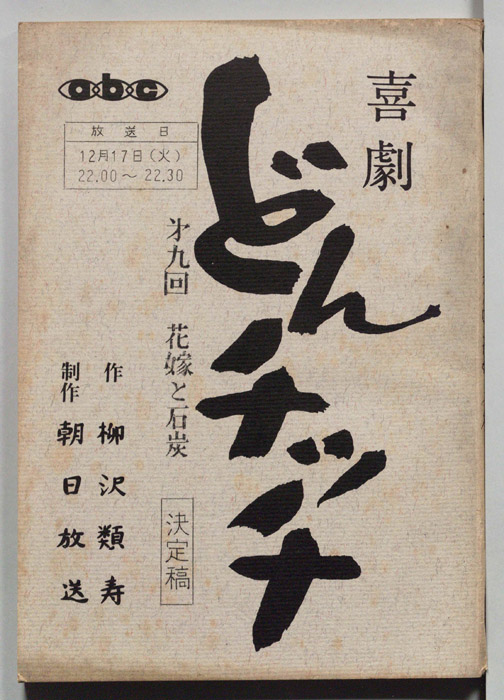 喜劇
どんチッチ
abc
放送日
12月17日(火)
22.00～22.30
才九回 花嫁と石炭
決定稿
作 柳沢類寿
制作 朝日放送